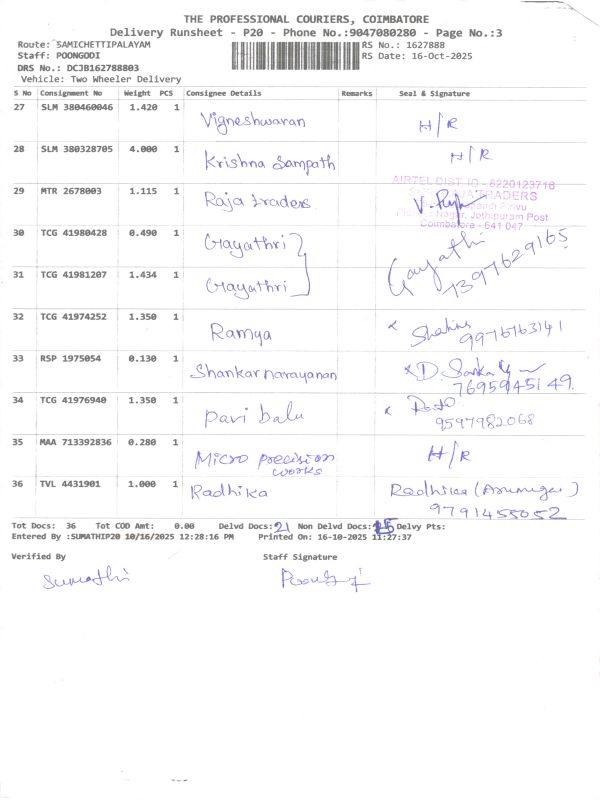 THE PROFESSIONAL COURIERS, COIMBATORE
Delivery Runsheet - P20 - Phone No.:9047080280 - Page No.:3
Route: SAMICHETTIPALAYAM RS No.: 1627888
Staff: POONGODI RS Date: 16-Oct-2025
DRS No.: DCJB162788803
Vehicle: Two Wheeler Delivery
S No Consignment No Weight PCS Consignee Details Remarks Seal & Signature
27 SLM 380460046 1.420 1 Vigneshwaran H/R
28 SLM 380328705 4.000 1 Krishna Sampath H/R
29 MTR 2678003 1.115 1 Raja traders
AIRTEL DIST ID - 6220123716
TRADERS
Nagar, Jothipuram Post
Coimbatore - 641 047
30 TCG 41980428 0.490 1 Gayathri
31 TCG 41981207 1.434 1 Gayathri Gayathi 7397629165
32 TCG 41974252 1.350 1 Ramya 9976763141
33 RSP 1975054 0.130 1 Shankarnarayanan 7695945149.
34 TCG 41976940 1.350 1 Pavi balu 9597982068
35 MAA 713392836 0.280 1 Micro precision works H/R
36 TVL 4431901 1.000 1 Radhika Radhika
9791455052
Tot Docs: 36 Tot COD Amt: 0.00 Delvd Docs: 21 Non Delvd Docs: 15 Delvy Pts:
Entered By :SUMATHIP20 10/16/2025 12:28:16 PM Printed On: 16-10-2025 11:27:37
Verified By Staff Signature
Sumathi